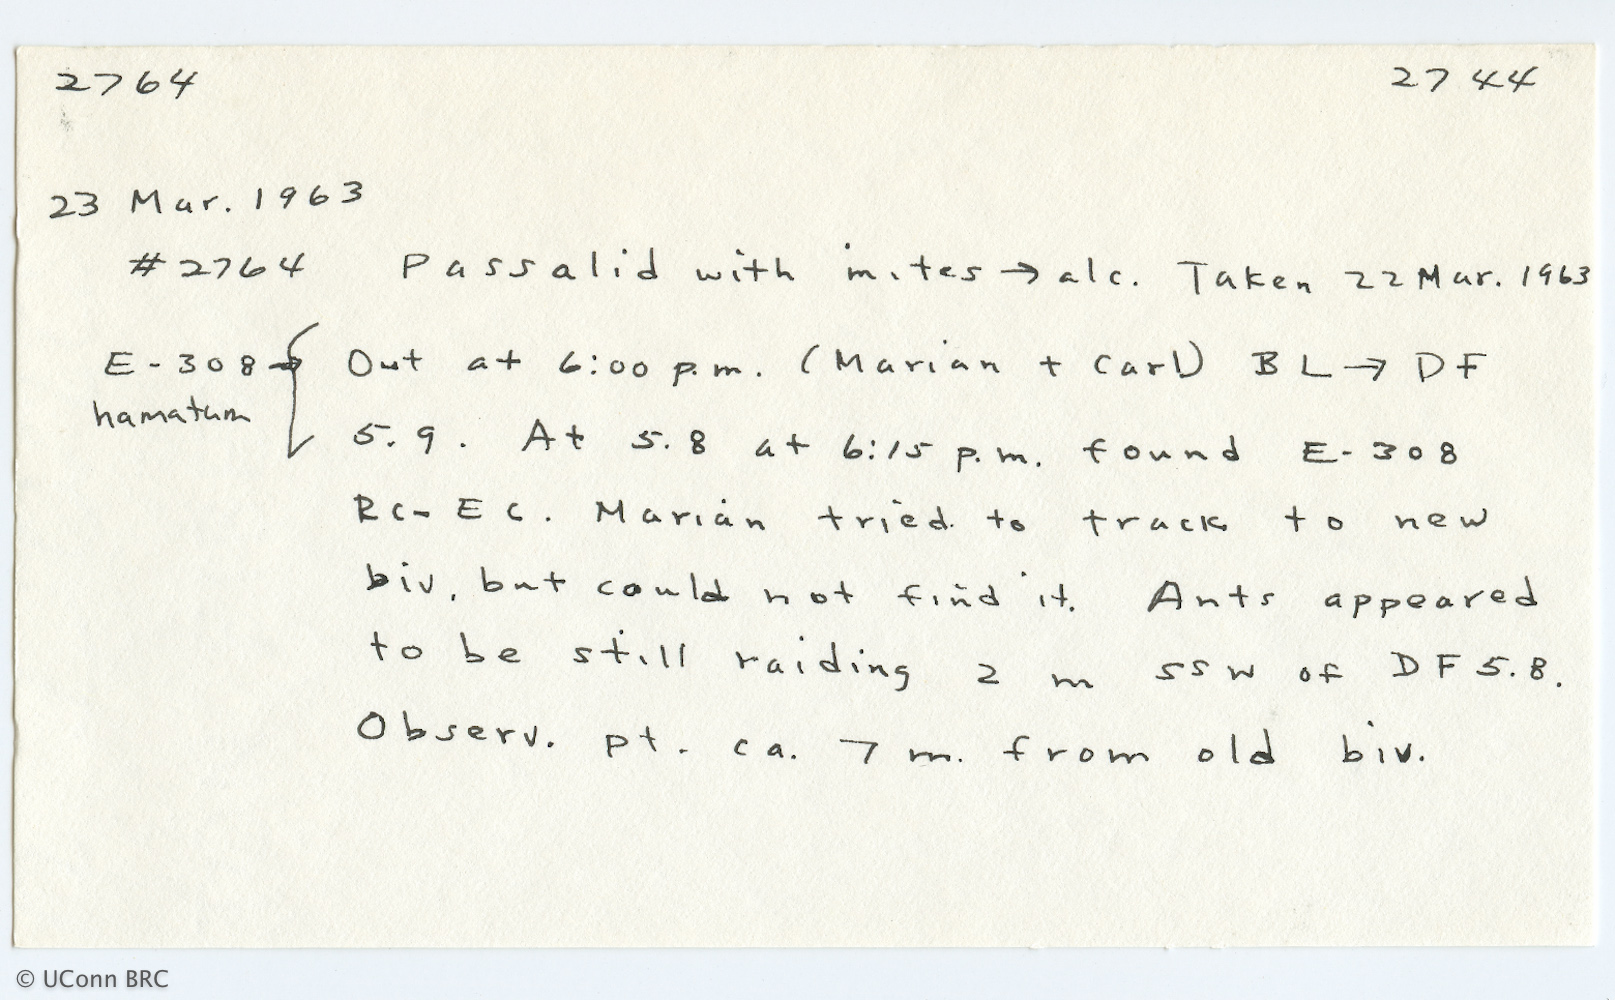 2764 2744
23 Mar. 1963
#2764 Passalid with mites → alc. Taken 22 Mar. 1963
E-308 → { Out at 6:00 p.m. (Marian + Carl) BL → DF
hamatum
5.9. At 5.8 at 6:15 p.m. found E-308
Rc-EC. Marian tried to track to new
biv, but could not find it. Ants appeared
to be still raiding 2 m SSW of DF 5.8.
Observ. pt. ca. 7 m. from old biv.
© UConn BRC